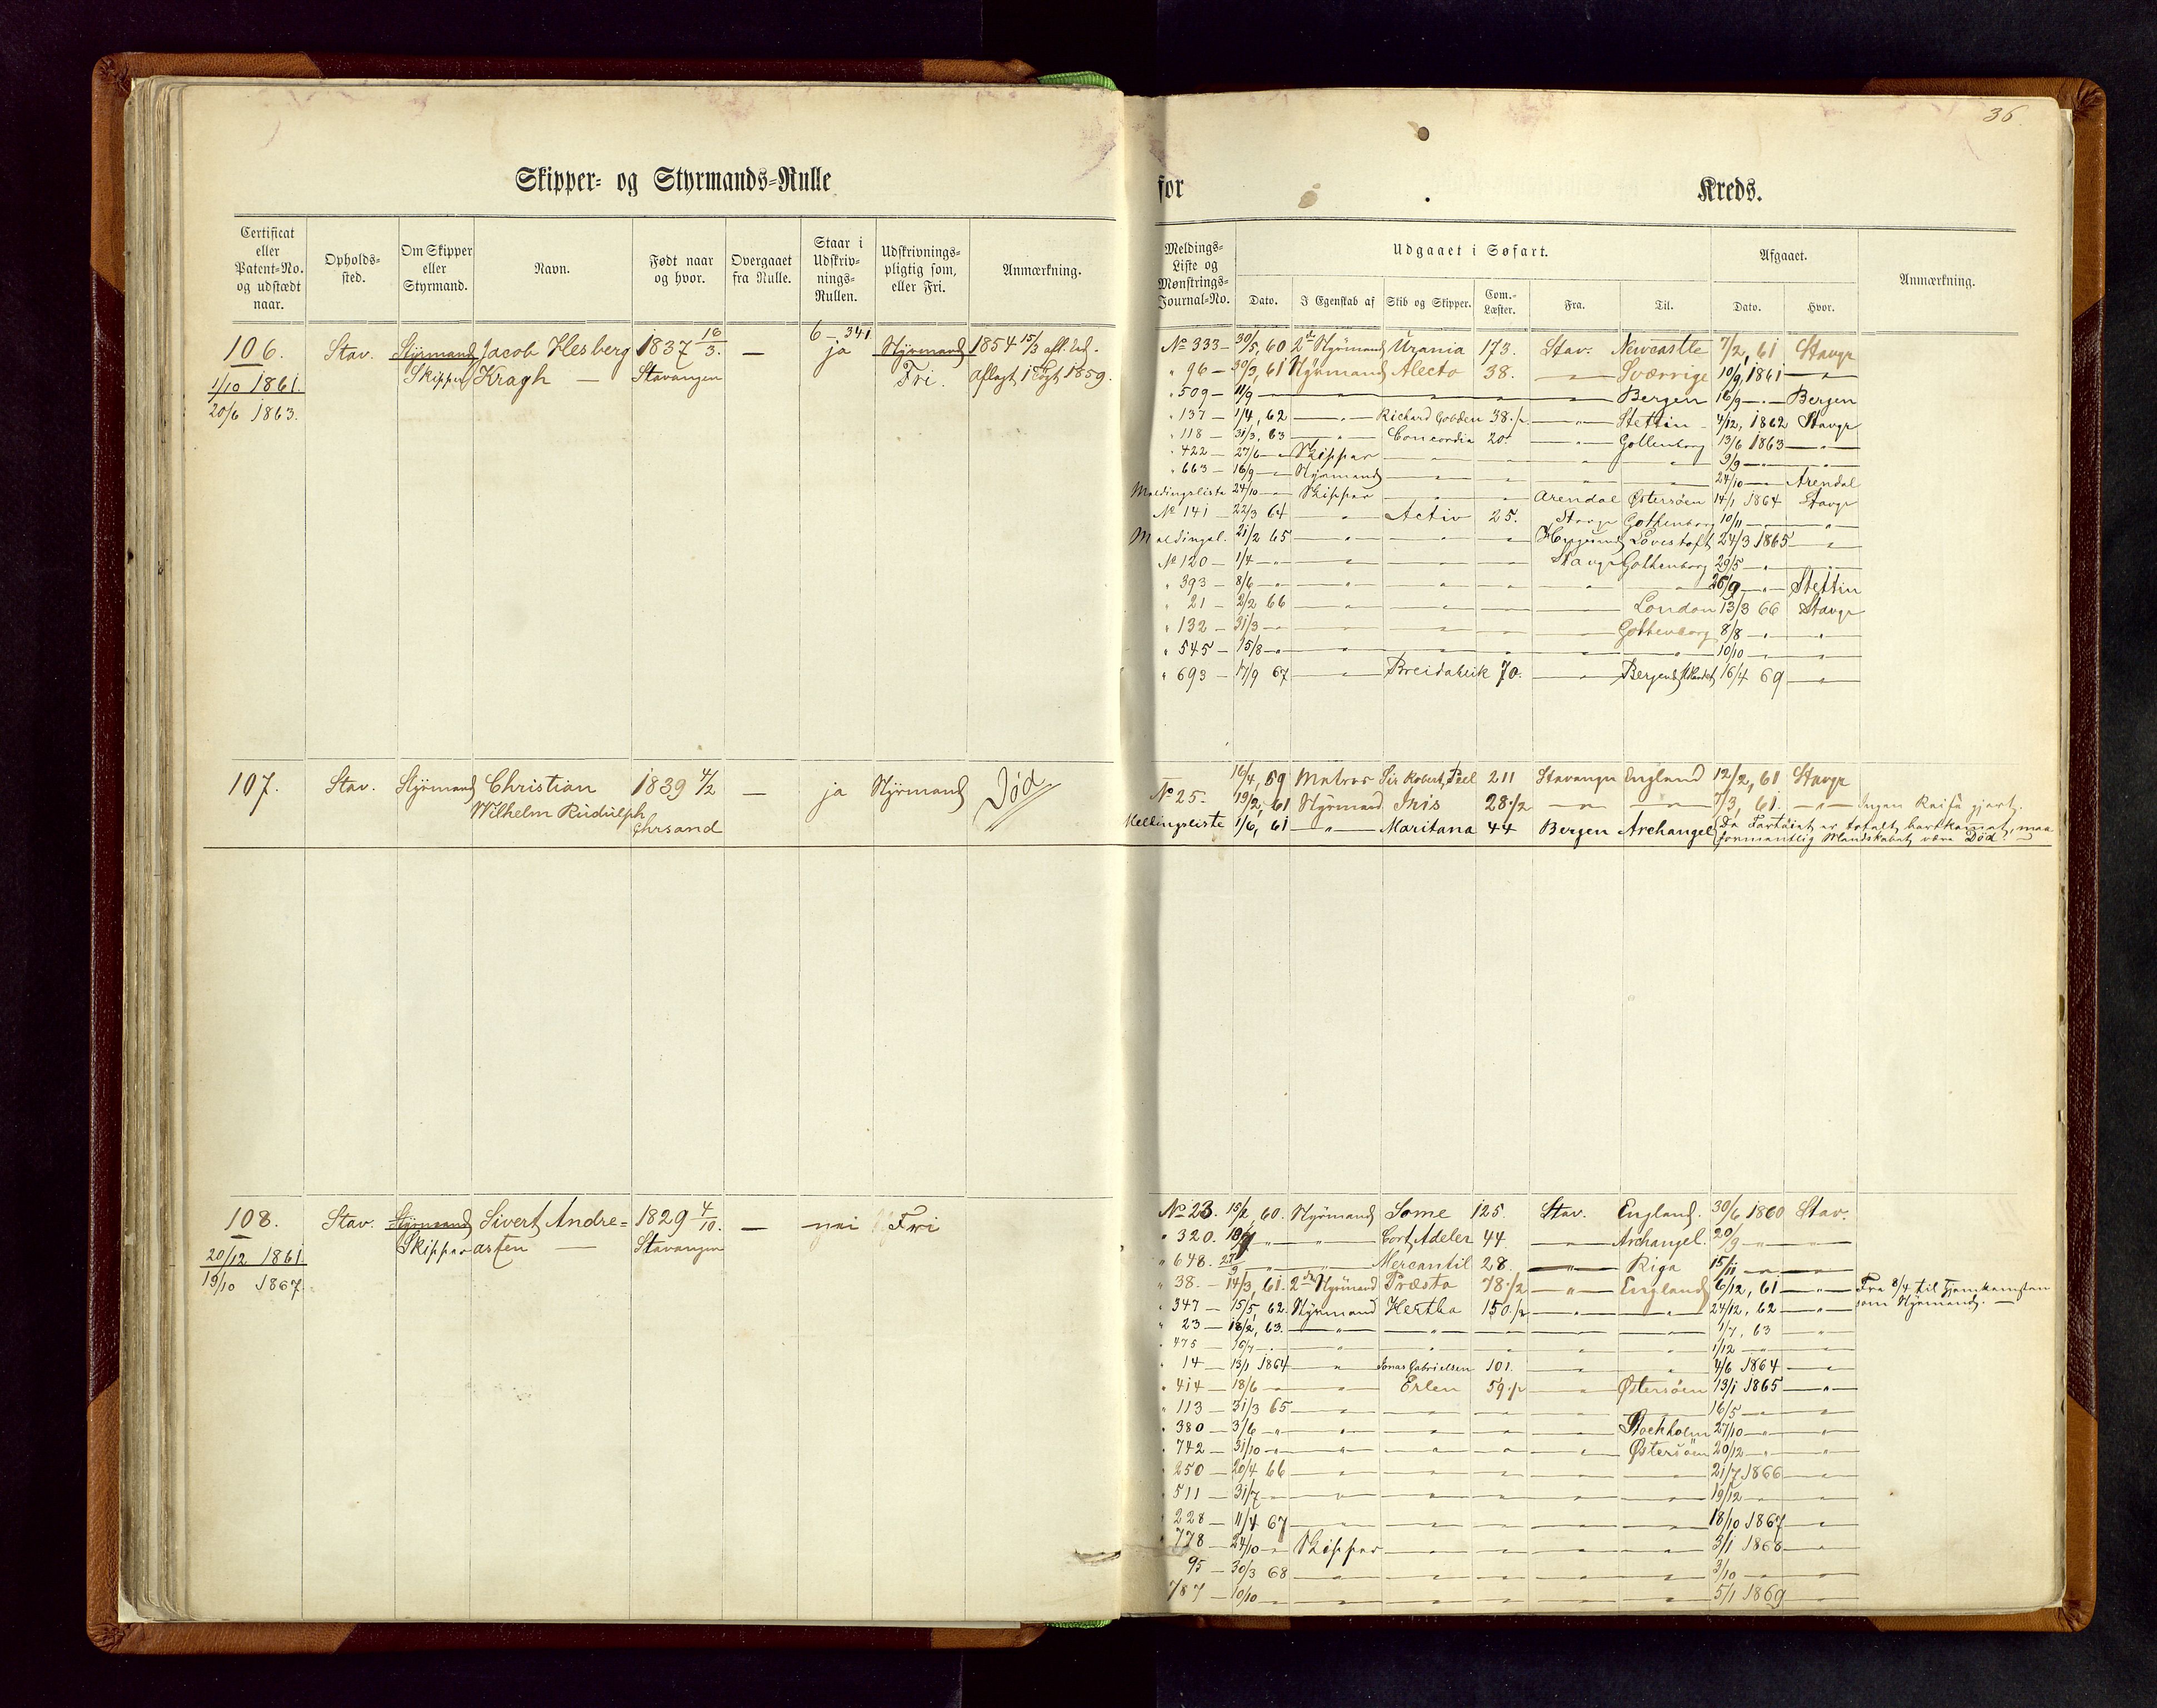 36
Skipper- og Styrmands-Rulle for Kreds.
Certificat eller Patent-No. og udstædt naar.
Opholds-sted.
Om Skipper eller Styrmand.
Navn.
Født naar og hvor.
Overgaaet fra Rulle.
Staar i Udskriv-nings-Rullen.
Udskrivnings-pligtig som, eller Fri.
Anmærkning.
Meldings-Liste og Mønstrings-Journal-No.
Udgaaet i Søfart.
Dato. I Egenskab af Skib og Skipper. Com.-Læster. Fra. Til.
Afgaaet.
Dato. Hvor.
Anmærkning.
106. Stav. Styrmand Jacob Hesberg 1837 16/3. — 6 - 341 ja Styrmand 1854 15/3 afl. Ed.
1/10 1861. Skipper Kragh — Stavanger Fri. Aflagt 1 Togt 1859.
20/6 1863.
No 333 — 30/5, 60 2den Styrmand Urania 173. Stav: Newcastle 7/2, 61 Stavgr
" 96 — 30/3, 61 Styrmand Alecto 38. — " — Sverrige 10/9, 1861 — " —
" 509 — 11/9 — " — " — " — Bergen 16/9 — " — Bergen
" 137 — 1/4, 62 — " — Richard Cobden 38 1/2 — " — Stettin 4/12, 1862 Stavgr
" 118 — 31/3, 63 — " — Concordia 20. — " — Gottenborg 13/6 1863 — " —
" 422 — 27/6 — " Skipper — " — " — " — " — 9/9 — " — " —
" 663 — 16/9 — " Styrmand — " — " — " — " — 24/10 — " Arendal
Meldingsliste 24/10 — " Skipper — " — " — Arendal Østersøen 14/1 1864 Stavgr
No 141 — 22/3 64 — " — Activ 25. Stavgr Gothenborg 10/11 — " — "
Meldingsl. 21/2 65 — " — " — " — Lovestoft 24/3 1865 — "
No 120 — 1/4 — " — " — " — " — Stavgr Gothenborg 29/5 — " — "
" 393 — 8/6 — " — " — " — " — " — " — 26/9 — " — Stettin
" 21 — 2/2 66 — " — " — " — London 13/3 66 Stavgr
" 132 — 31/3 — " — " — " — " — Gothenborg 8/8 — " — "
" 545 — 15/8 — " — " — " — " — " — " — 10/10 — " — "
" 693 — 17/9 67 — " — Breidablik 70. — " — 16/4 69 — "
107. Stav. Styrmand Christian 1839 4/2 — ja Styrmand Død
Wilhelm Rudulph Chrsand
16/4, 59 Matros Sir Robert Peel 211 Stavanger England 12/2, 61 Stavgr
No 25. 19/2, 61 Styrmand Iris 28 1/2 — " — — " — 7/3, 61. — " — Ingen Reise gjort.
Meldingsliste 1/6, 61 — " — Maritana 44 Bergen Archangel (Da Fartøiet er totalt bortkommet, maa
formentlig Mandskabet være Død. —
108. Stav. Styrmand Sivert Andre= 1829 4/10. — nei Fri
20/12 1861. Skipper asen — Stavanger
19/10 1867.
No 23. 15/2, 60. Styrmand Some 125. Stav. England. 30/6 1860 Stav.
" 320. " " Cort Adeler 44. — " — Archangel. 20/9 " — " —
" 648. 27/9 — " — " — Mercantil 28. — " — Riga 15/11 — " — " —
" 38. — 14/3, 61. 2den Styrmand Præsto 78 1/2 — " — England 6/12, 61 — " — Fra 8/4 til Hjemkomsten
som Styrmand. —
" 347 — 15/5, 62. Styrmand Hertha 150 1/2 — " — " — 24/12, 62 — "
" 23 — 18/2, 63. — " — " — " — " — 1/7, 63 — "
" 475 — 16/7 — " — " — " — " — " — 1/12 — " — "
" 14 — 13/1 1864 — " Jonas Gabrielsen 101. — " — " — 4/6 1864 — "
" 414 — 18/6 — " — " Erlen 59 1/2 — " Østersøen 13/1 1865 — " —
" 113 — 31/3 65 — " — " — " — " — 16/5 — " — "
" 380 — 3/6 — " — " — " — " — " — Stockholm 27/10 — " — "
" 742 — 31/10 — " — " — " — " — " Østersøen 20/12 — " — "
" 250 — 20/4 66 — " — " — " — " — " — 21/7 1866 — "
" 511 — 31/7 — " — " — " — " — " — 19/12 — " — "
" 228 — 11/4 67 — " — " — " — " — " — 18/10 1867 — "
" 778 — 24/10 — " Skipper — " — " — " — " — 3/1 1868 — "
95 — 30/3 68 — " — " — " — " — " — 3/10 — " — "
787 — 10/10 — " — " — " — " — " — 5/1 1869 — "